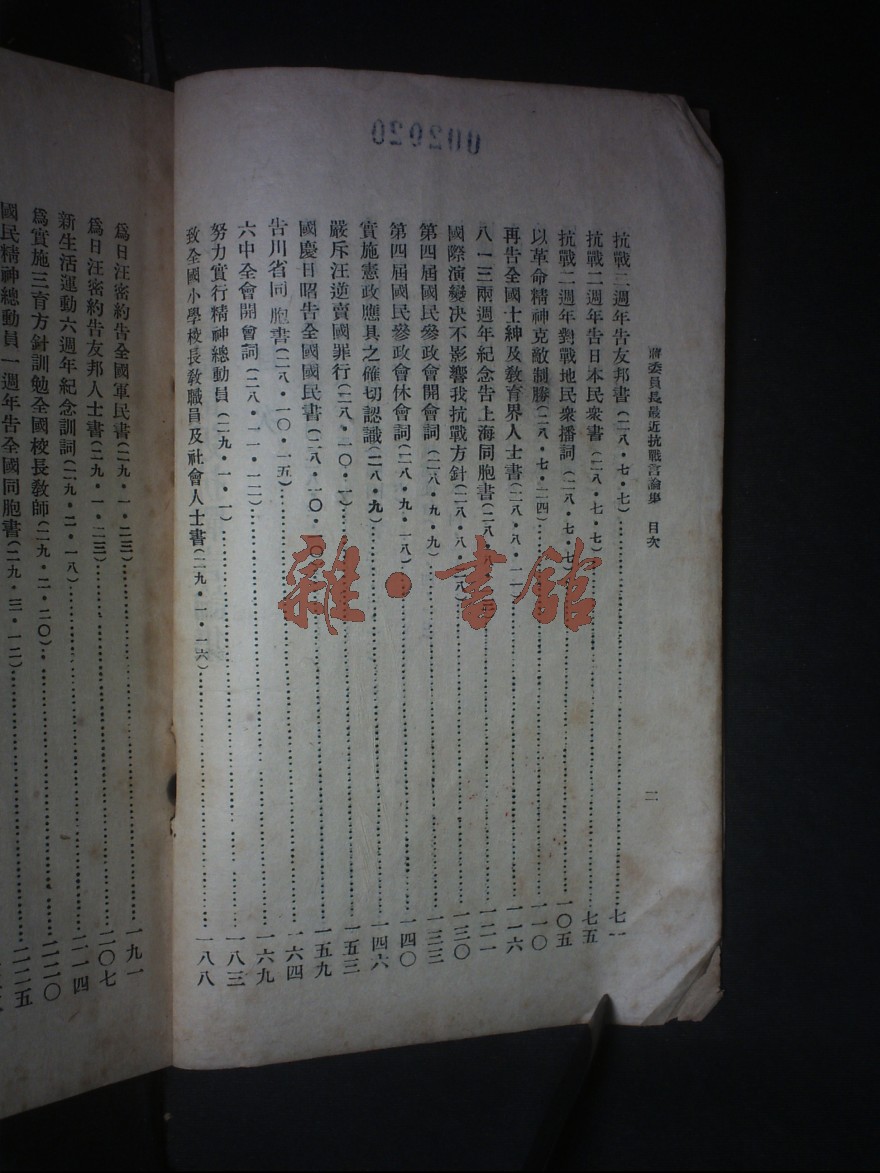 002020
蔣委員長最近抗戰言論集 目次
二
抗戰二週年告友邦書(二八・七・七)……七一
抗戰二週年告日本民衆書(二八・七・七)……七五
抗戰二週年對戰地民衆播詞(二八・七・七)……一〇五
以革命精神克敵制勝(二八・七・二四)……一一〇
再告全國士紳及敎育界人士書(二八・八・一一)……一一六
八一三兩週年紀念告上海同胞書(二八・八・)……一二一
國際演變決不影響我抗戰方針(二八・八・二八)……一三〇
第四屆國民參政會開會詞(二八・九・九)……一三三
第四屆國民參政會休會詞(二八・九・一八)……一四〇
實施憲政應具之確切認識(二八・九)……一四六
嚴斥汪逆賣國罪行(二八・一〇・一)……一五三
國慶日昭告全國國民書(二八・一〇・一〇)……一五九
告川省同胞書(二八・一〇・一五)……一六四
六中全會開會詞(二八・一一・一二)……一六九
努力實行精神總動員(二九・一・一)……一八三
致全國小學校長敎職員及社會人士書(二九・一・一六)……一八八
爲日汪密約告全國軍民書(二九・一・二三)……一九一
爲日汪密約告友邦人士書(二九・一・二三)……二〇七
新生活運動六週年紀念訓詞(二九・二・一八)……二一四
爲實施三育方針訓勉全國校長敎師(二九・二・二〇)……二二〇
國民精神總動員一週年告全國同胞書(二九・三・一二)……二二五
雜・書館